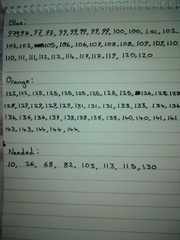 Blue:
97, 97, 97, 97, 99, 99, 99, 99, 100, 100, 101, 102,
102, 102, 105, 106, 106, 107, 108, 108, 109, 109, 110
110, 111, 111, 112, 112, 114, 117, 117, 119, 120, 120
Orange:
122, 122, 125, 125, 125, 125, 125, 125, 126, 128, 128
128, 129, 129, 129, 129, 131, 131, 131, 133, 133, 134, 136
136, 136, 136, 137, 138, 138, 138, 138, 140, 140, 141, 141
143, 143, 144, 144, 144,
Needed:
10, 26, 68, 82, 103, 113, 115, 130